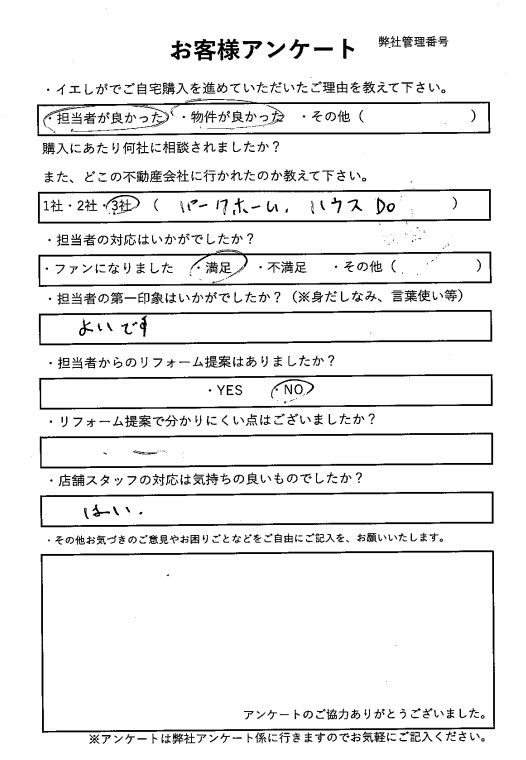 お客様アンケート
弊社管理番号
・イエしがでご自宅購入を進めていただいたご理由を教えて下さい。
・担当者が良かった ・物件が良かった ・その他（ ）
購入にあたり何社に相談されましたか？
また、どこの不動産会社に行かれたのか教えて下さい。
1社・2社・3社 （ パークホーム. ハウスDo ）
・担当者の対応はいかがでしたか？
・ファンになりました ・満足 ・不満足 ・その他（ ）
・担当者の第一印象はいかがでしたか？（※身だしなみ、言葉使い等）
よいです
・担当者からのリフォーム提案はありましたか？
・YES ・NO
・リフォーム提案で分かりにくい点はございましたか？
・ ー
・店舗スタッフの対応は気持ちの良いものでしたか？
はい.
・その他お気づきのご意見やお困りごとなどをご自由にご記入を、お願いいたします。
アンケートのご協力ありがとうございました。
※アンケートは弊社アンケート係に行きますのでお気軽にご記入ください。